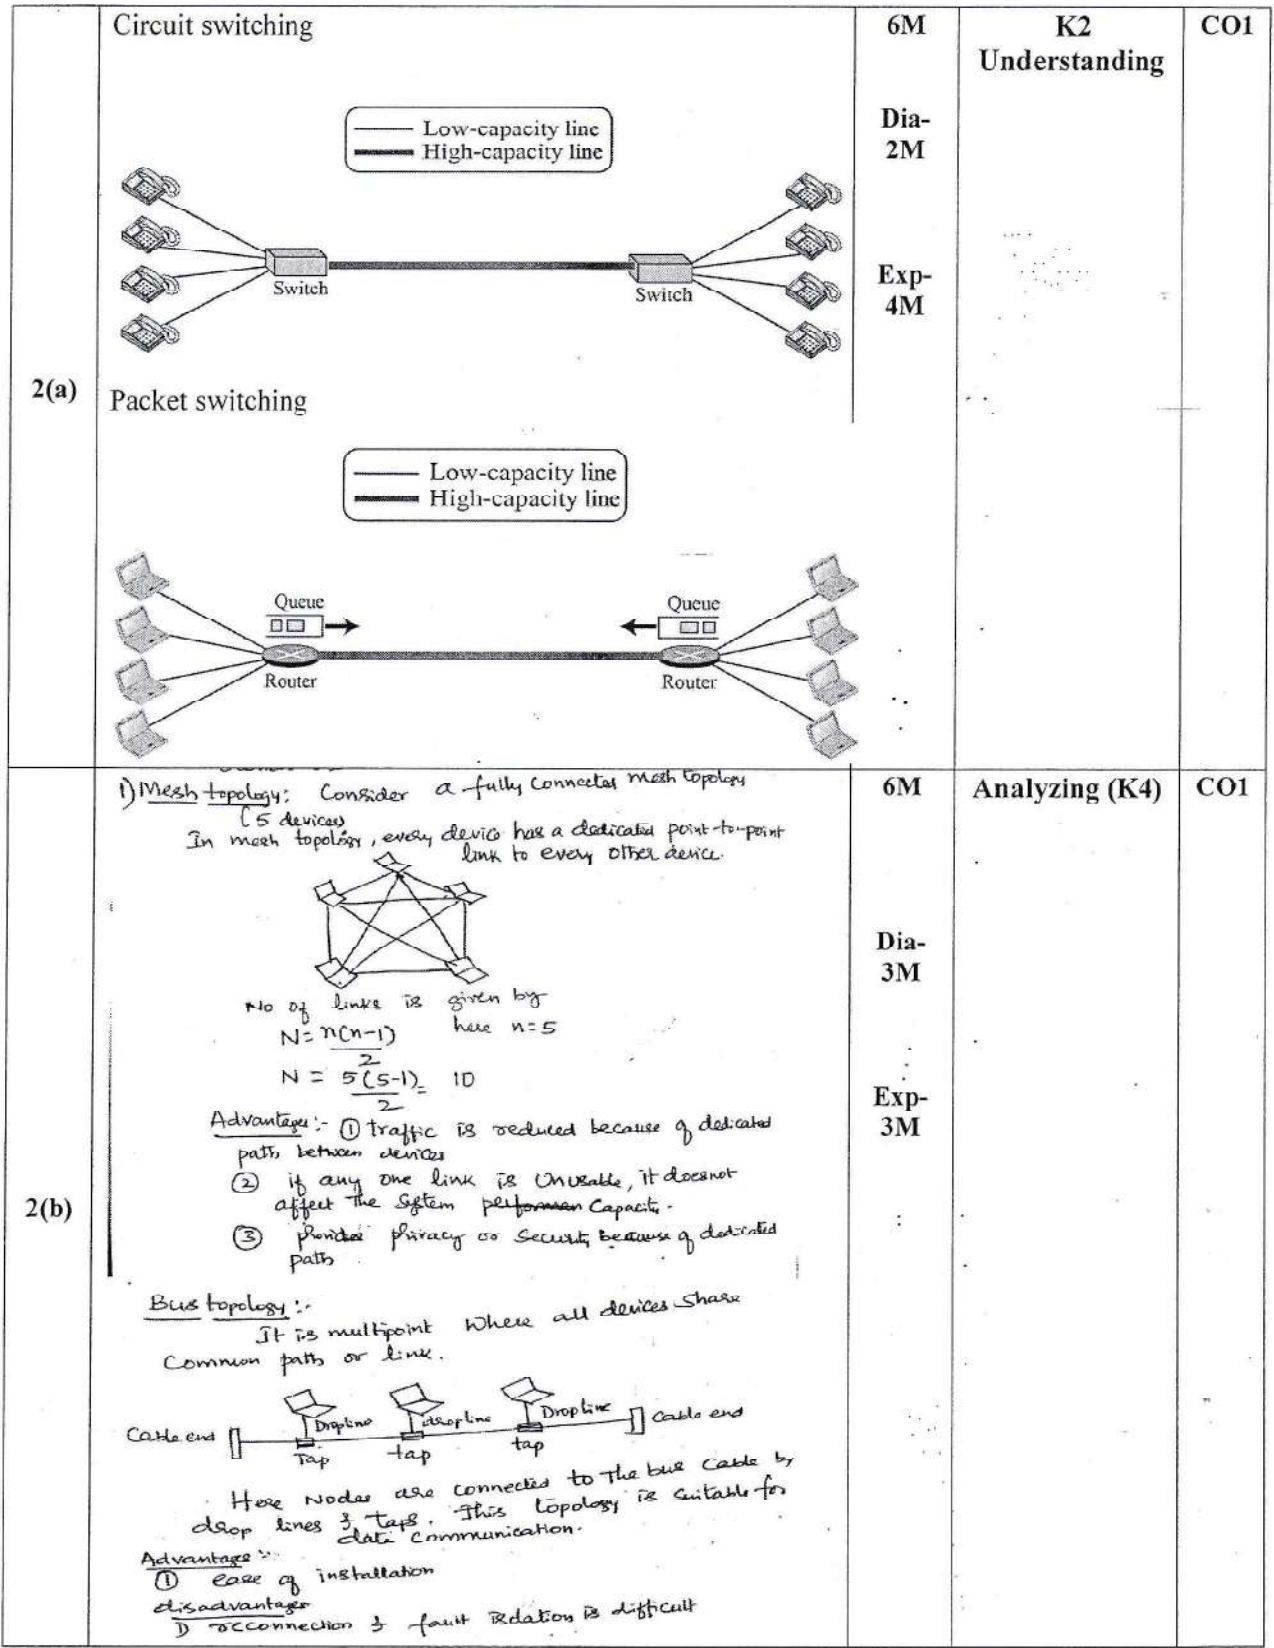 Circuit switching
6M
K2
Understanding
CO1
Low-capacity line
High-capacity line
Dia-
2M
Switch
Switch
Exp-
4M
2(a)
Packet switching
Low-capacity line
High-capacity line
Queue
Queue
Router
Router
1) Mesh topology: Consider a fully connected mesh topology
(5 devices)
In mesh topology, every device has a dedicated point-to-point
link to every other device.
6M
Analyzing (K4)
CO1
Dia-
3M
No of links is given by
N = n(n-1)
2
here n=5
N = 5(5-1) = 10
2
Exp-
3M
Advantages:- ① traffic is reduced because of dedicated
path between devices
② if any one link is Unusable, it doesnot
affect the System Capacity.
③ provides privacy or security because of dedicated
path
2(b)
Bus topology :-
It is multipoint where all devices share
Common path or link.
Cable end
Dropline
dropline
Dropline
Cable end
Tap
tap
tap
Here Nodes are connected to the bus cable by
drop lines & taps. This topology is suitable for
data communication.
Advantage :-
① ease of installation
disadvantages
1) reconnection & fault isolation is difficult